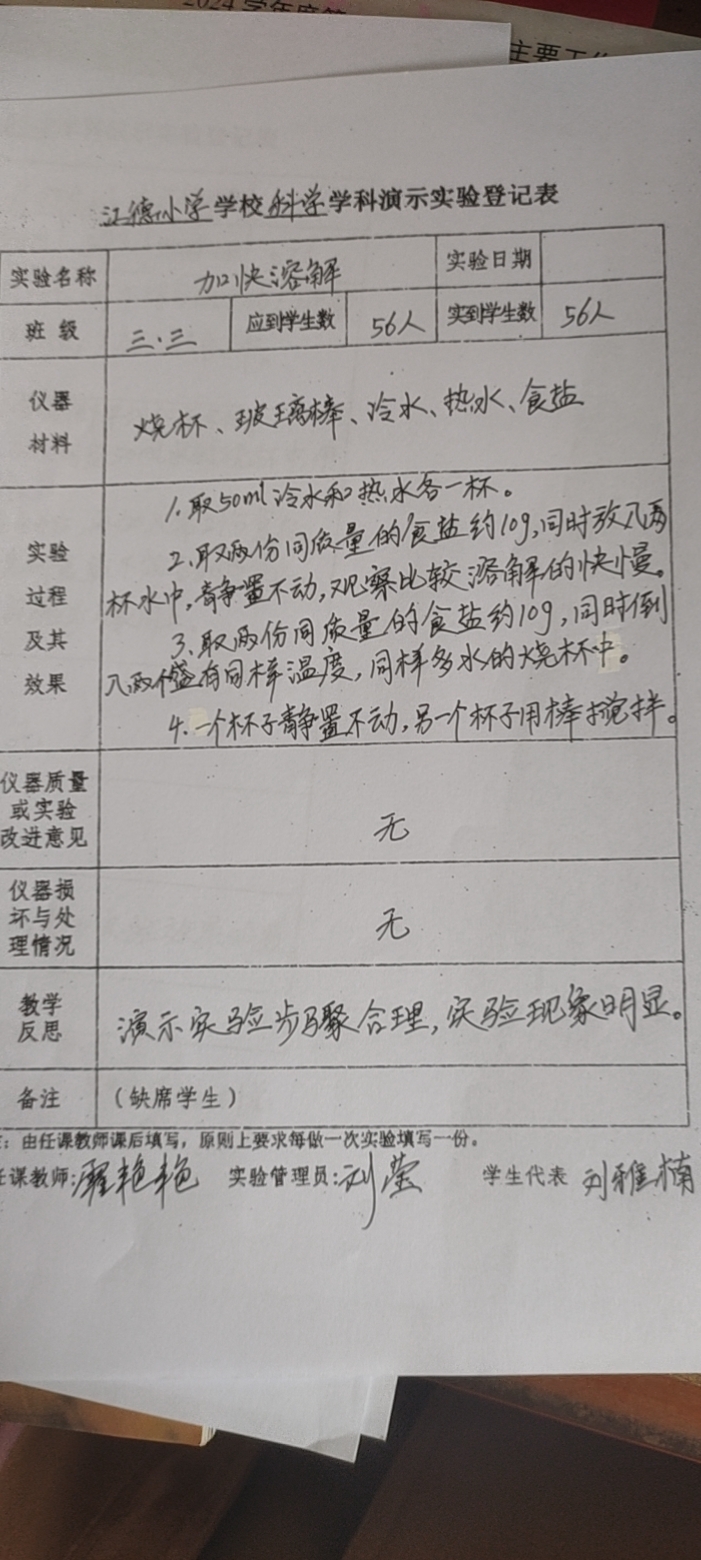 2024 学年度第
主要工作
江德小学学校科学学科演示实验登记表
实验名称 加快溶解 实验日期
班 级 三.三 应到学生数 56人 实到学生数 56人
仪器
材料
烧杯、玻璃棒、冷水、热水、食盐
实验
过程
及其
效果
1.取50ml冷水和热水各一杯。
2.取两份同质量的食盐约10g,同时放入两
杯水中,静置不动,观察比较溶解的快慢。
3.取两份同质量的食盐约10g,同时倒
入两个盛有同样温度,同样多水的烧杯中。
4.一个杯子静置不动,另一个杯子用棒搅拌。
仪器质量
或实验
改进意见
无
仪器损
坏与处
理情况
无
教学
反思
演示实验步骤合理,实验现象明显。
备注 (缺席学生)
:由任课教师课后填写,原则上要求每做一次实验填写一份。
任课教师:翟艳艳 实验管理员:刘莹 学生代表 刘雅楠